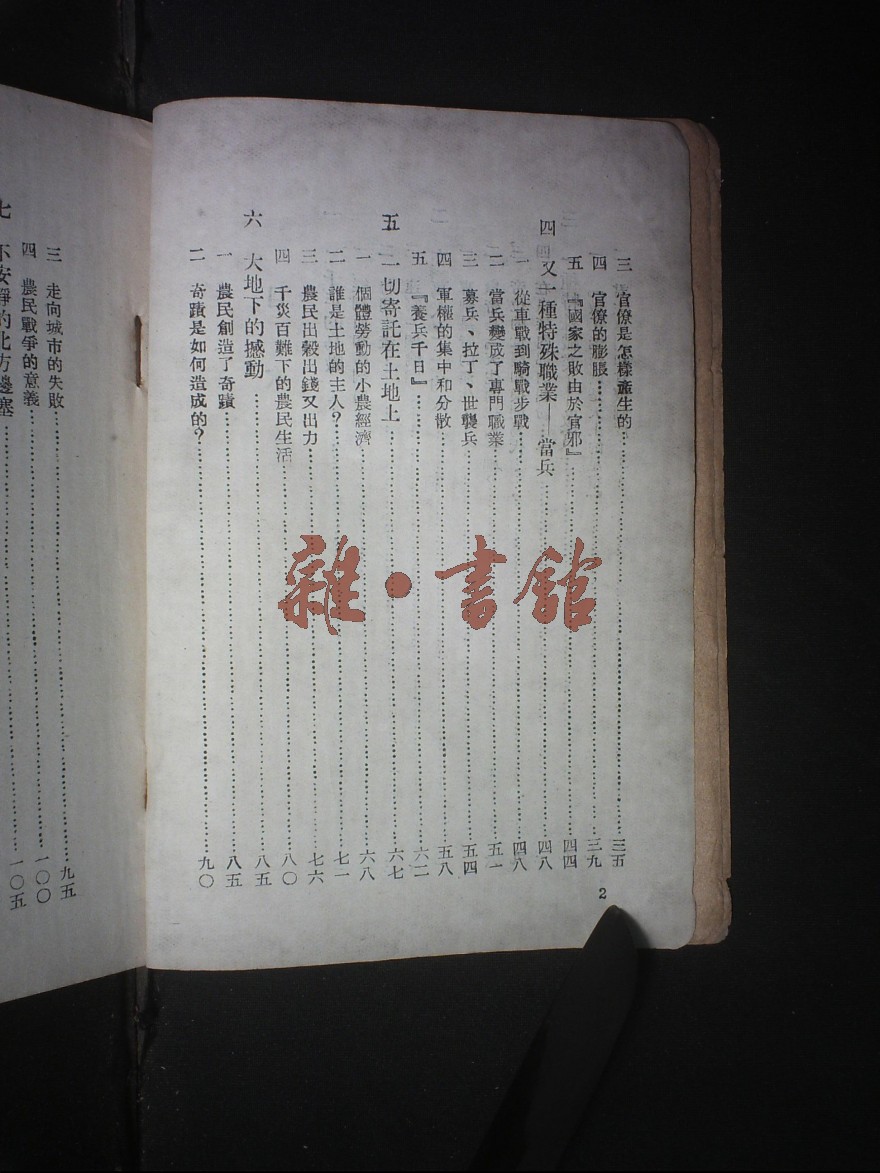 三 官僚是怎樣產生的……三五
四 官僚的膨脹……三九
五 『國家之敗由於官邪』……四四
四 又一種特殊職業——當兵……四八
一 從車戰到騎戰步戰……四八
二 當兵變成了專門職業……五一
三 募兵、拉丁、世襲兵……五四
四 軍權的集中和分散……五八
五 『養兵千日』……六二
五 一切寄託在土地上……六七
一 個體勞動的小農經濟……六八
二 誰是土地的主人？……七一
三 農民出穀出錢又出力……七六
四 千災百難下的農民生活……八〇
六 大地下的撼動……八五
一 農民創造了奇蹟……八五
二 奇蹟是如何造成的？……九〇
2
三 走向城市的失敗……九五
四 農民戰爭的意義……一〇〇
七 不安靜的北方邊塞……一〇五
雜·書館